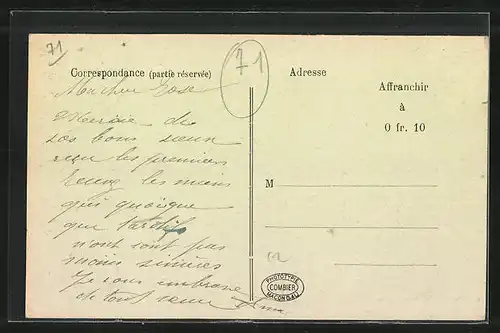 71
71
Correspondance (partie réservée)
Adresse
Affranchir
à
0 fr. 10
M
Ma chère Rose
Merci de
vos bons vœux
reçu les premiers
les miens
qui quoique
que tardifs
n'ont sont pas
moins sincères
Je vous embrasse
de tout cœur
PHOTOTYPIE
COMBIER
MACON (S&L)